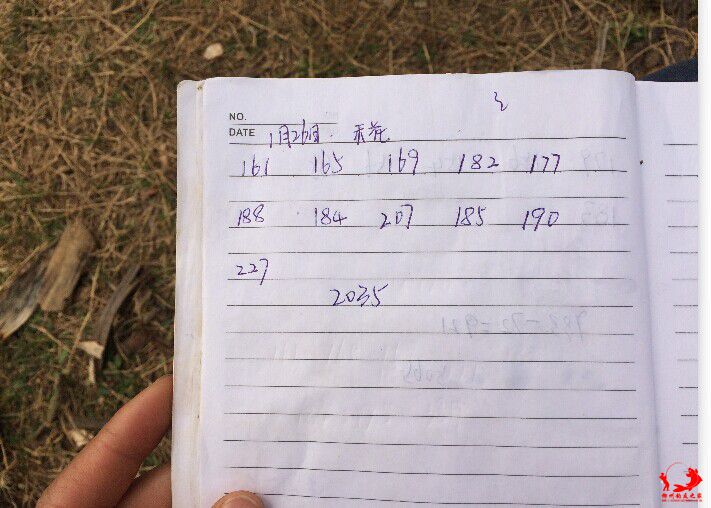 NO.
DATE 1月26日.
161 165 169 182 177
188 184 207 185 190
227
2035